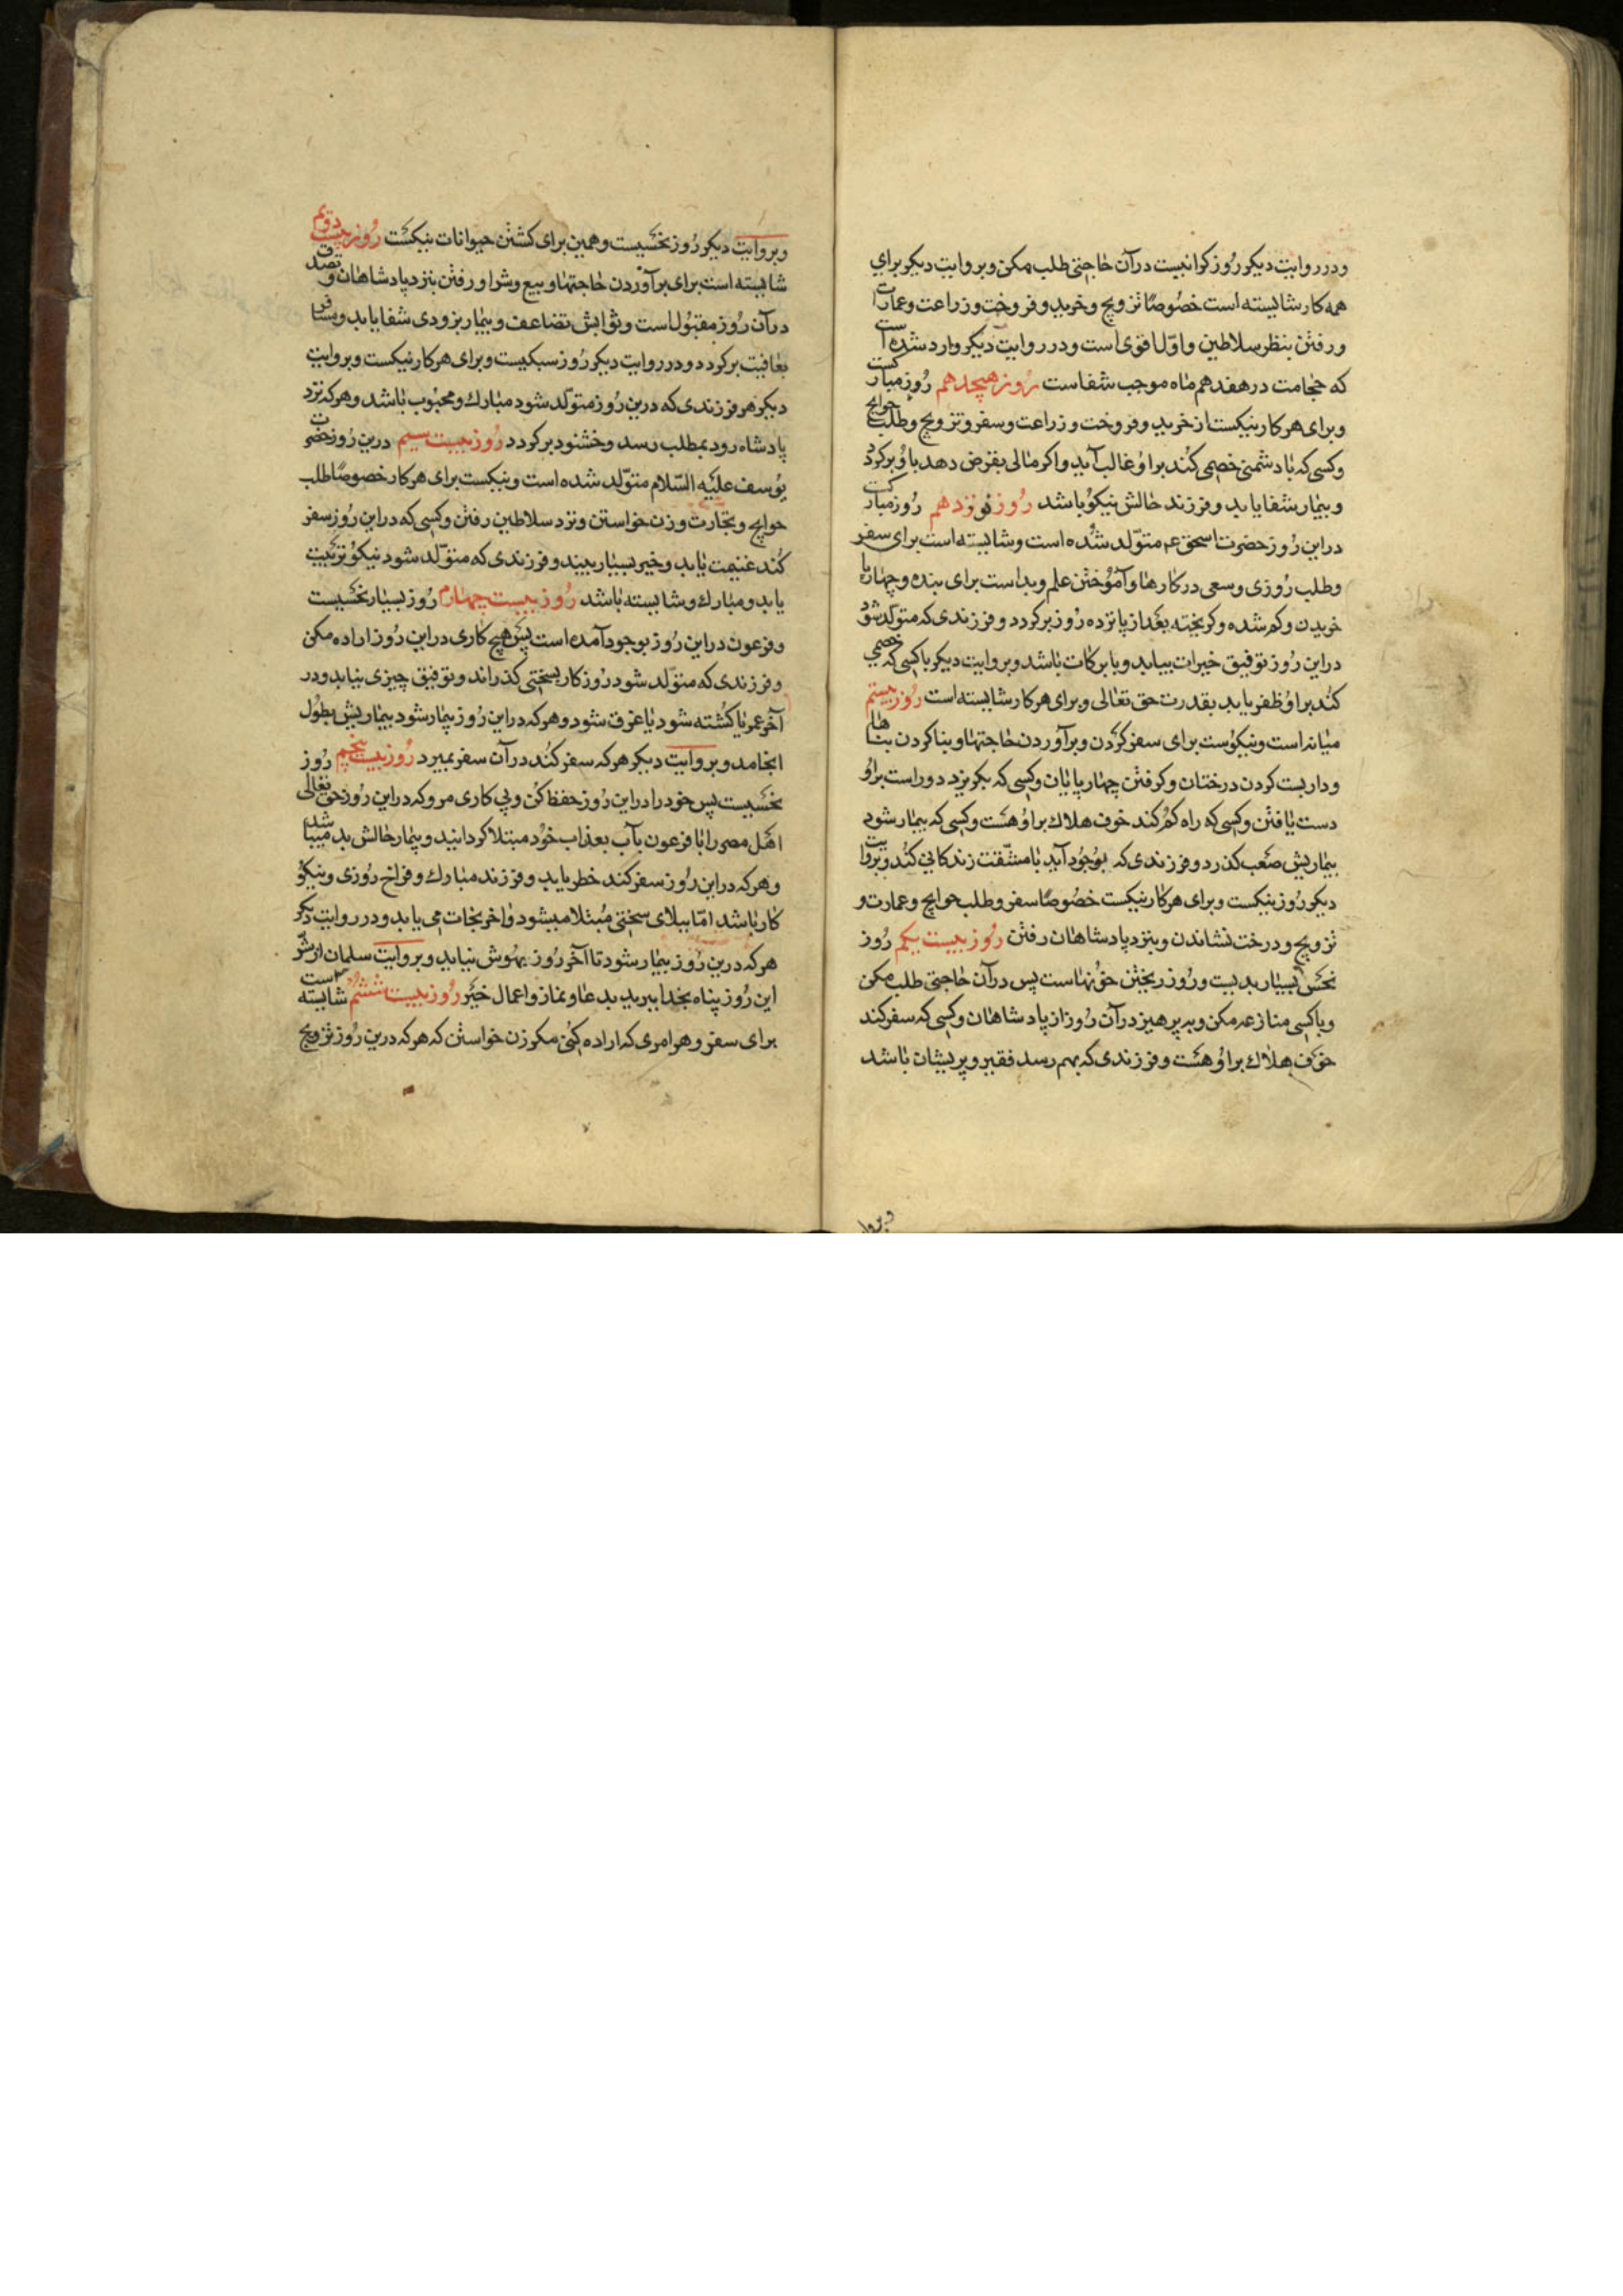 ودر روایت دیکر روز کرانیست در آن حاجتی طلب مکن و بروایت دیکر برای
همه کار شایسته است خصوصًا تزویج و خرید و فروخت و زراعت و عمارت
و رفتن بنظر سلاطین و اوّل اقوی است و در روایت دیکر وارد شده است
که حجامت در هفدهم ماه موجب شفاست روز هیچدهم روز مبارکست
و برای هر کار نیکست از خرید و فروخت و زراعت و سفر و تزویج و طلب حوایج
و کسی که با دشمنی خصمی کند بر او غالب آید و اکر مالی بقرض دهد باو برکردد
و بیمار شفا یابد و فرزند حالش نیکو باشد روز نوزدهم روز مبارکست
در این روز حضرت اسحق عم متولّد شده است و شایسته است برای سفر
و طلب روزی و سعی در کارها و آموختن علم و بد است برای بنده و چهارپا
خریدن و کم شده و کریخته بعد از پانزده روز برکردد و فرزندی که متولّد شود
در این روز توفیق خیرات بیابد و با برکات باشد و بروایت دیکر با کسی که خصمی
کند بر او ظفر یابد بقدرت حق تعالی و برای هر کار شایسته است روز بیستم
میانه است و نیکوست برای سفر کردن و بر آوردن حاجتها و بنا کردن بناها
و داربست کردن درختان و کرفتن چهار پایان و کسی که بکریزد دور است بر او
دست یافتن و کسی که راه کم کند خوف هلاک بر او هست و کسی که بیمار شود
بیماریش صعب کذرد و فرزندی که بوجود آید با مشقّت زندکانی کند و بروایت
دیکر روز نیکست و برای هر کار نیکست خصوصًا سفر و طلب حوایج و عمارت و
تزویج و درخت نشاندن و بنزد پادشاهان رفتن روز بیست یکم روز
نحس بسیار بدیست و روز ریختن خونهاست پس در آن حاجتی طلب مکن
و با کسی منازعه مکن و بپرهیز در آن روز از پادشاهان و کسی که سفر کند
خوف هلاک بر او هست و فرزندی که بهم رسد فقیر و پریشان باشد
وبروا
و بروایت دیکر روز نحسیست و همین برای کشتن حیوانات نیکست روز بیست دویم
شایسته است برای برآوردن حاجتها و بیع و شرا و رفتن بنزد پادشاهان و تصدق
در آن روز مقبول است و ثوابش تضاعف و بیمار بزودی شفا یابد و مسافر
بعافیت برکردد و در روایت دیکر روز سبکیست و برای هر کار نیکست و بروایت
دیکر هر فرزندی که درین روز متولّد شود مبارک و محبوب باشد و هر که نزد
پادشاه رود بمطلب رسد و خشنود برکردد روز بیست سیم درین روز حضرت
یوسف علیه السّلام متولّد شده است و نیکست برای هر کار خصوصًا طلب
حوایج و تجارت و زن خواستن و نزد سلاطین رفتن و کسی که در این روز سفر
کند غنیمت یابد و خیر بسیار بیند و فرزندی که متولّد شود نیکو تربیت
یابد و مبارک و شایسته باشد روز بیست چهارم روز بسیار نحسیست
و فرعون در این روز بوجود آمده است پس هیچ کاری در این روز اراده مکن
و فرزندی که متولّد شود روزکار بسختی کذراند و توفیق چیزی نیابد و در
آخر عمر یا کشته شود یا غرق شود و هر که در این روز بیمار شود بیماریش بطول
انجامد و بروایت دیکر هر که سفر کند در آن سفر بمیرد روز بیست پنجم روز
نحسیست پس خود را در این روز حفظ کن و پی کاری مرو که در این روز حق تعالی
اهل مصر را با فرعون بآب بعذاب خود مبتلا کردانید و بیمار حالش بد میباشد
و هر که در این روز سفر کند خطر یابد و فرزند مبارک و فراخ روزی و نیکو
کار باشد امّا ببلای سختی مبتلا میشود و آخر نجات می یابد و در روایت دیکر
هر که درین روز بیمار شود تا آخر روز بهوش نیاید و بروایت سلمان از شرّ
این روز پناه بخدا ببرید بدعا و نماز و اعمال خیر روز بیست ششم شایسته است
برای سفر و هر امری که اراده کنی مکر زن خواستن که هر که درین روز تزویج